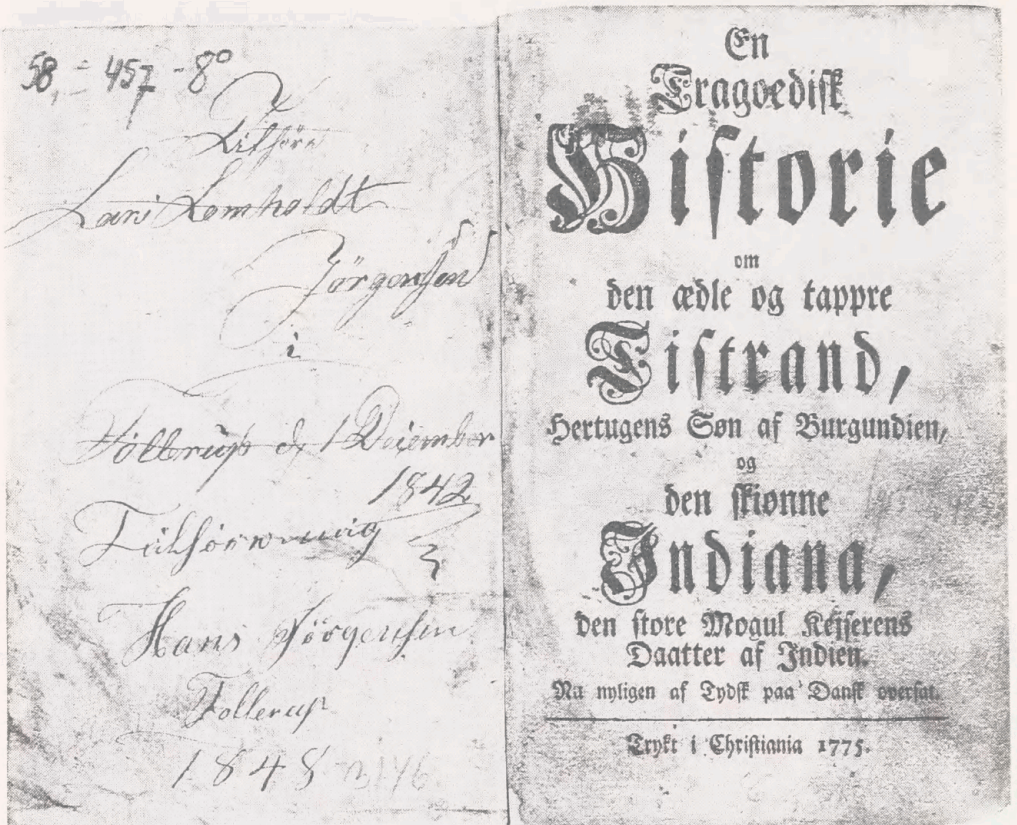 58, - 457 - 8°
Tilhörer
Lars Lomholdt
Jörgensen
i
Follerup d. 1 Deiember
1842
Hans Jörgensen
Follerup
1848
En
Tragoedisk
Historie
om
den ædle og tappre
Tistrand,
Hertugens Søn af Burgundien,
og
den skiønne
Indiana,
den store Mogul Kejserens
Daatter af Indien.
Nu nyligen af Tydsk paa Dansk oversat.
Trykt i Christiania 1775.